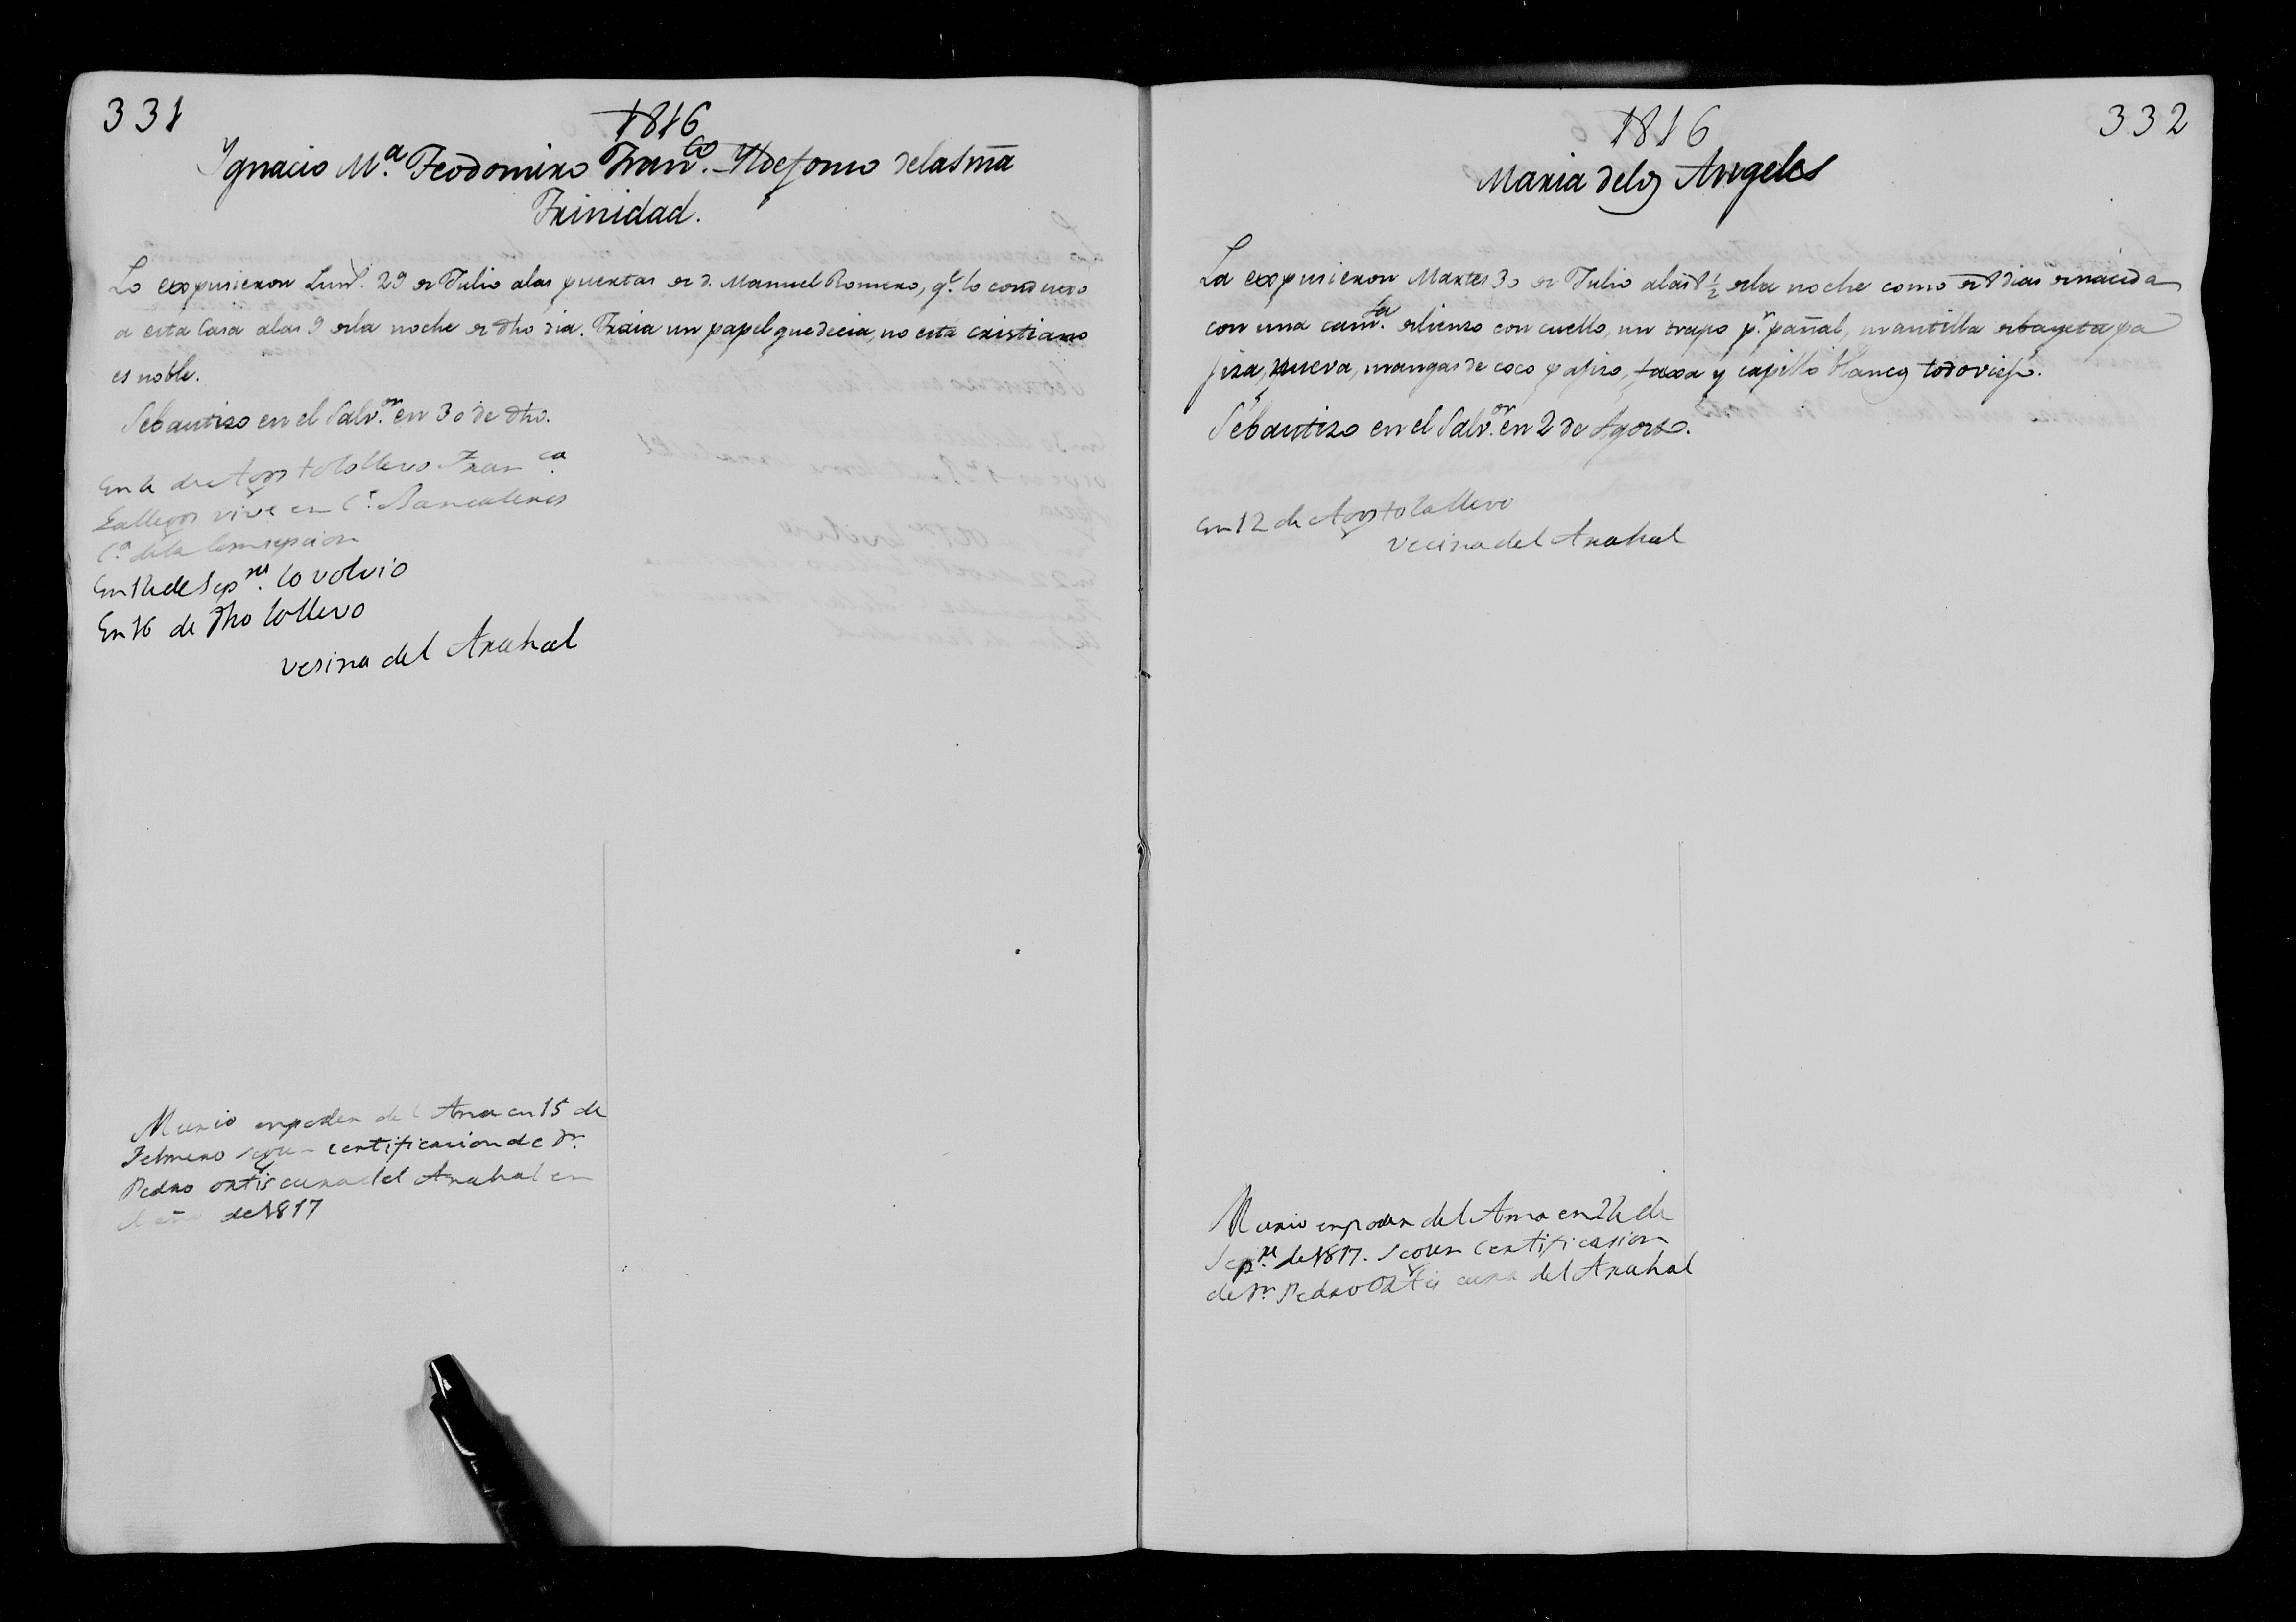 331
1816
Ygnacio M.ª Teodomiro Fran.co Yldefonso delasma
Trinidad.
Lo expusieron Lun.s 29 de Julio alas puertas de d. Manuel Romero, q.e lo conduxo
a esta Casa alas 9 dela noche de dho dia. Traia un papel que decia, no está cristiano
es noble.
Sebautizo en el Salv.or en 30 de dho.
En 4 de Agosto lollevo Fran ca
Gallegos vive en C.e Bancaleros
C.ª dela Consepcion
En 14 de Sep.re lo volvio
En 16 de dho lollevo
vesina del Arahal
Murio enpoder del Ama en 15 de
Febrero segun certificacion de Dn.
Pedro ortis cura del Arahal en
el año de 1817
1816
332
Maria delos Angeles
La expusieron Martes 30 de Julio alas 8 1/2 dela noche como de 8 dias de nacida
con una cam.sa de lienzo con cuello, un trapo p.r pañal, mantilla de bayeta pa
jiza, nueva, mangas de coco pajizo, faxa y capillo blancos todo viejo.
Sebautizo en el Salv.or en 2 de Agosto.
En 12 de Agosto lallevo
vecina del Arahal
Murio enpoder del Ama en 24 de
Sep.re de 1817. segun Certificasion
de Dn Pedro Ortis cura del Arahal